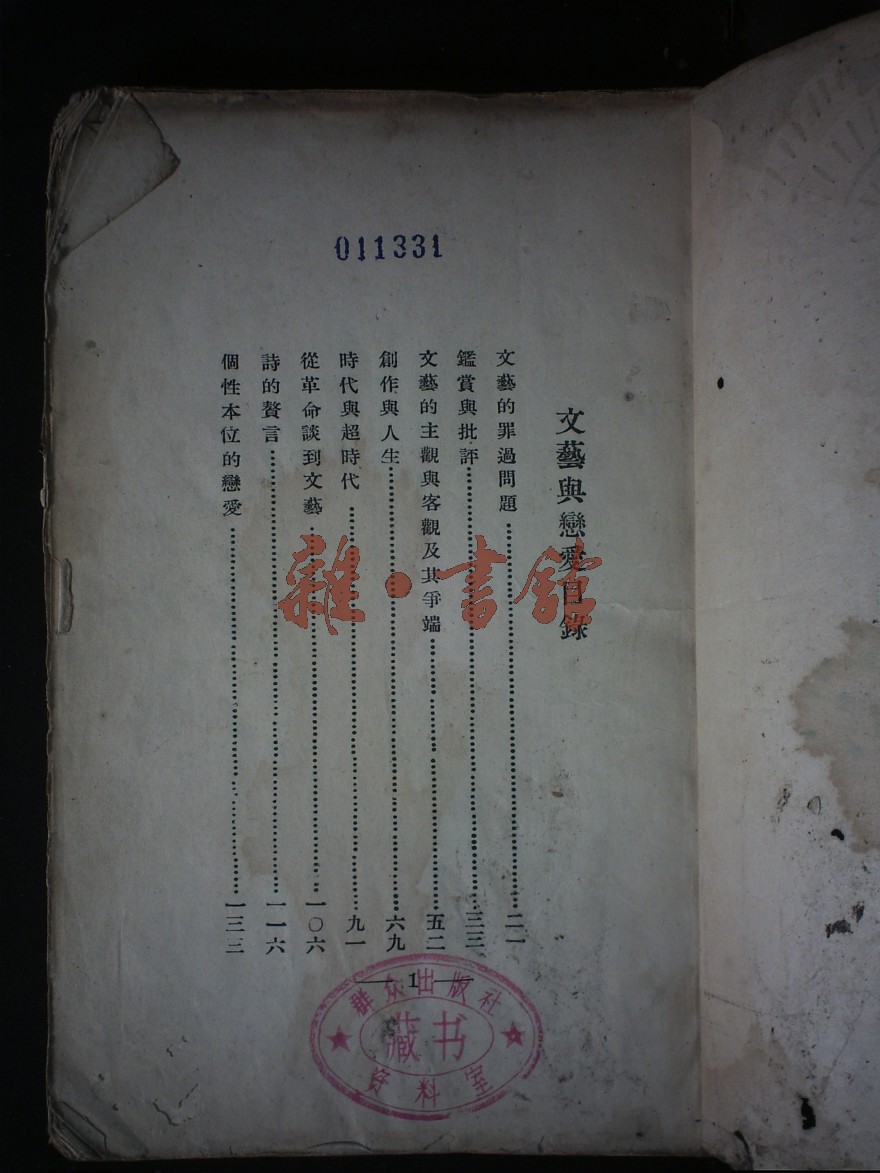 011331
文藝與戀愛目錄
文藝的罪過問題……二一
鑑賞與批評……三三
文藝的主觀與客觀及其爭端……五二
創作與人生……六九
時代與超時代……九一
從革命談到文藝……一〇六
詩的贅言……一一六
個性本位的戀愛……一三三
— 1 —
雜·書館
群众出版社
藏书
资料室